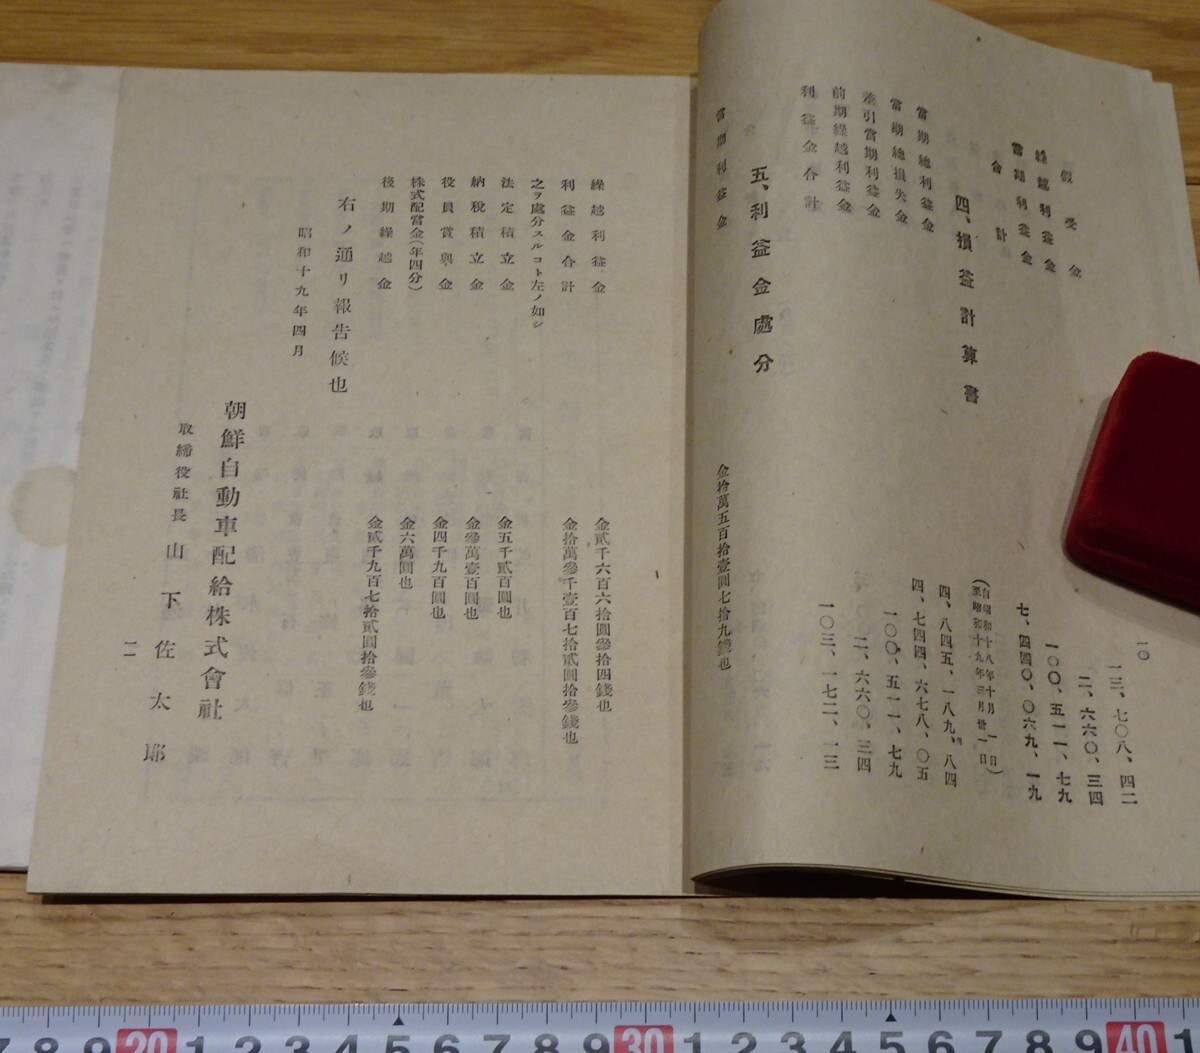 一〇
假受金 一三、七〇八、四二
繰越利益金 二、六六〇、三四
當期利益金 一〇〇、五一一、七九
合計 七、四四〇、〇六九、一九
四、損益計算書
(自昭和十八年十月一日
至昭和十九年三月卅一日)
當期總利益金 四、八四五、一八九、八四
當期總損失金 四、七四四、六七八、〇五
差引當期利益金 一〇〇、五一一、七九
前期繰越利益金 二、六六〇、三四
利益金合計 一〇三、一七二、一三
五、利益金處分
當期利益金 金拾萬五百拾壹圓七拾九錢也
繰越利益金 金貳千六百六拾圓參拾四錢也
利益金合計 金拾萬參千壹百七拾貳圓拾參錢也
之ヲ處分スルコト左ノ如シ
法定積立金 金五千貳百圓也
納稅積立金 金參萬壹百圓也
役員賞與金 金四千九百圓也
株式配當金(年四分) 金六萬圓也
後期繰越金 金貳千九百七拾貳圓拾參錢也
右ノ通リ報告候也
昭和十九年四月
朝鮮自動車配給株式會社
取締役社長 山下佐太郎
一一
20 30 40
7 8 9 1 2 3 4 5 6 7 8 9 1 2 3 4 5 6 7 8 9 1